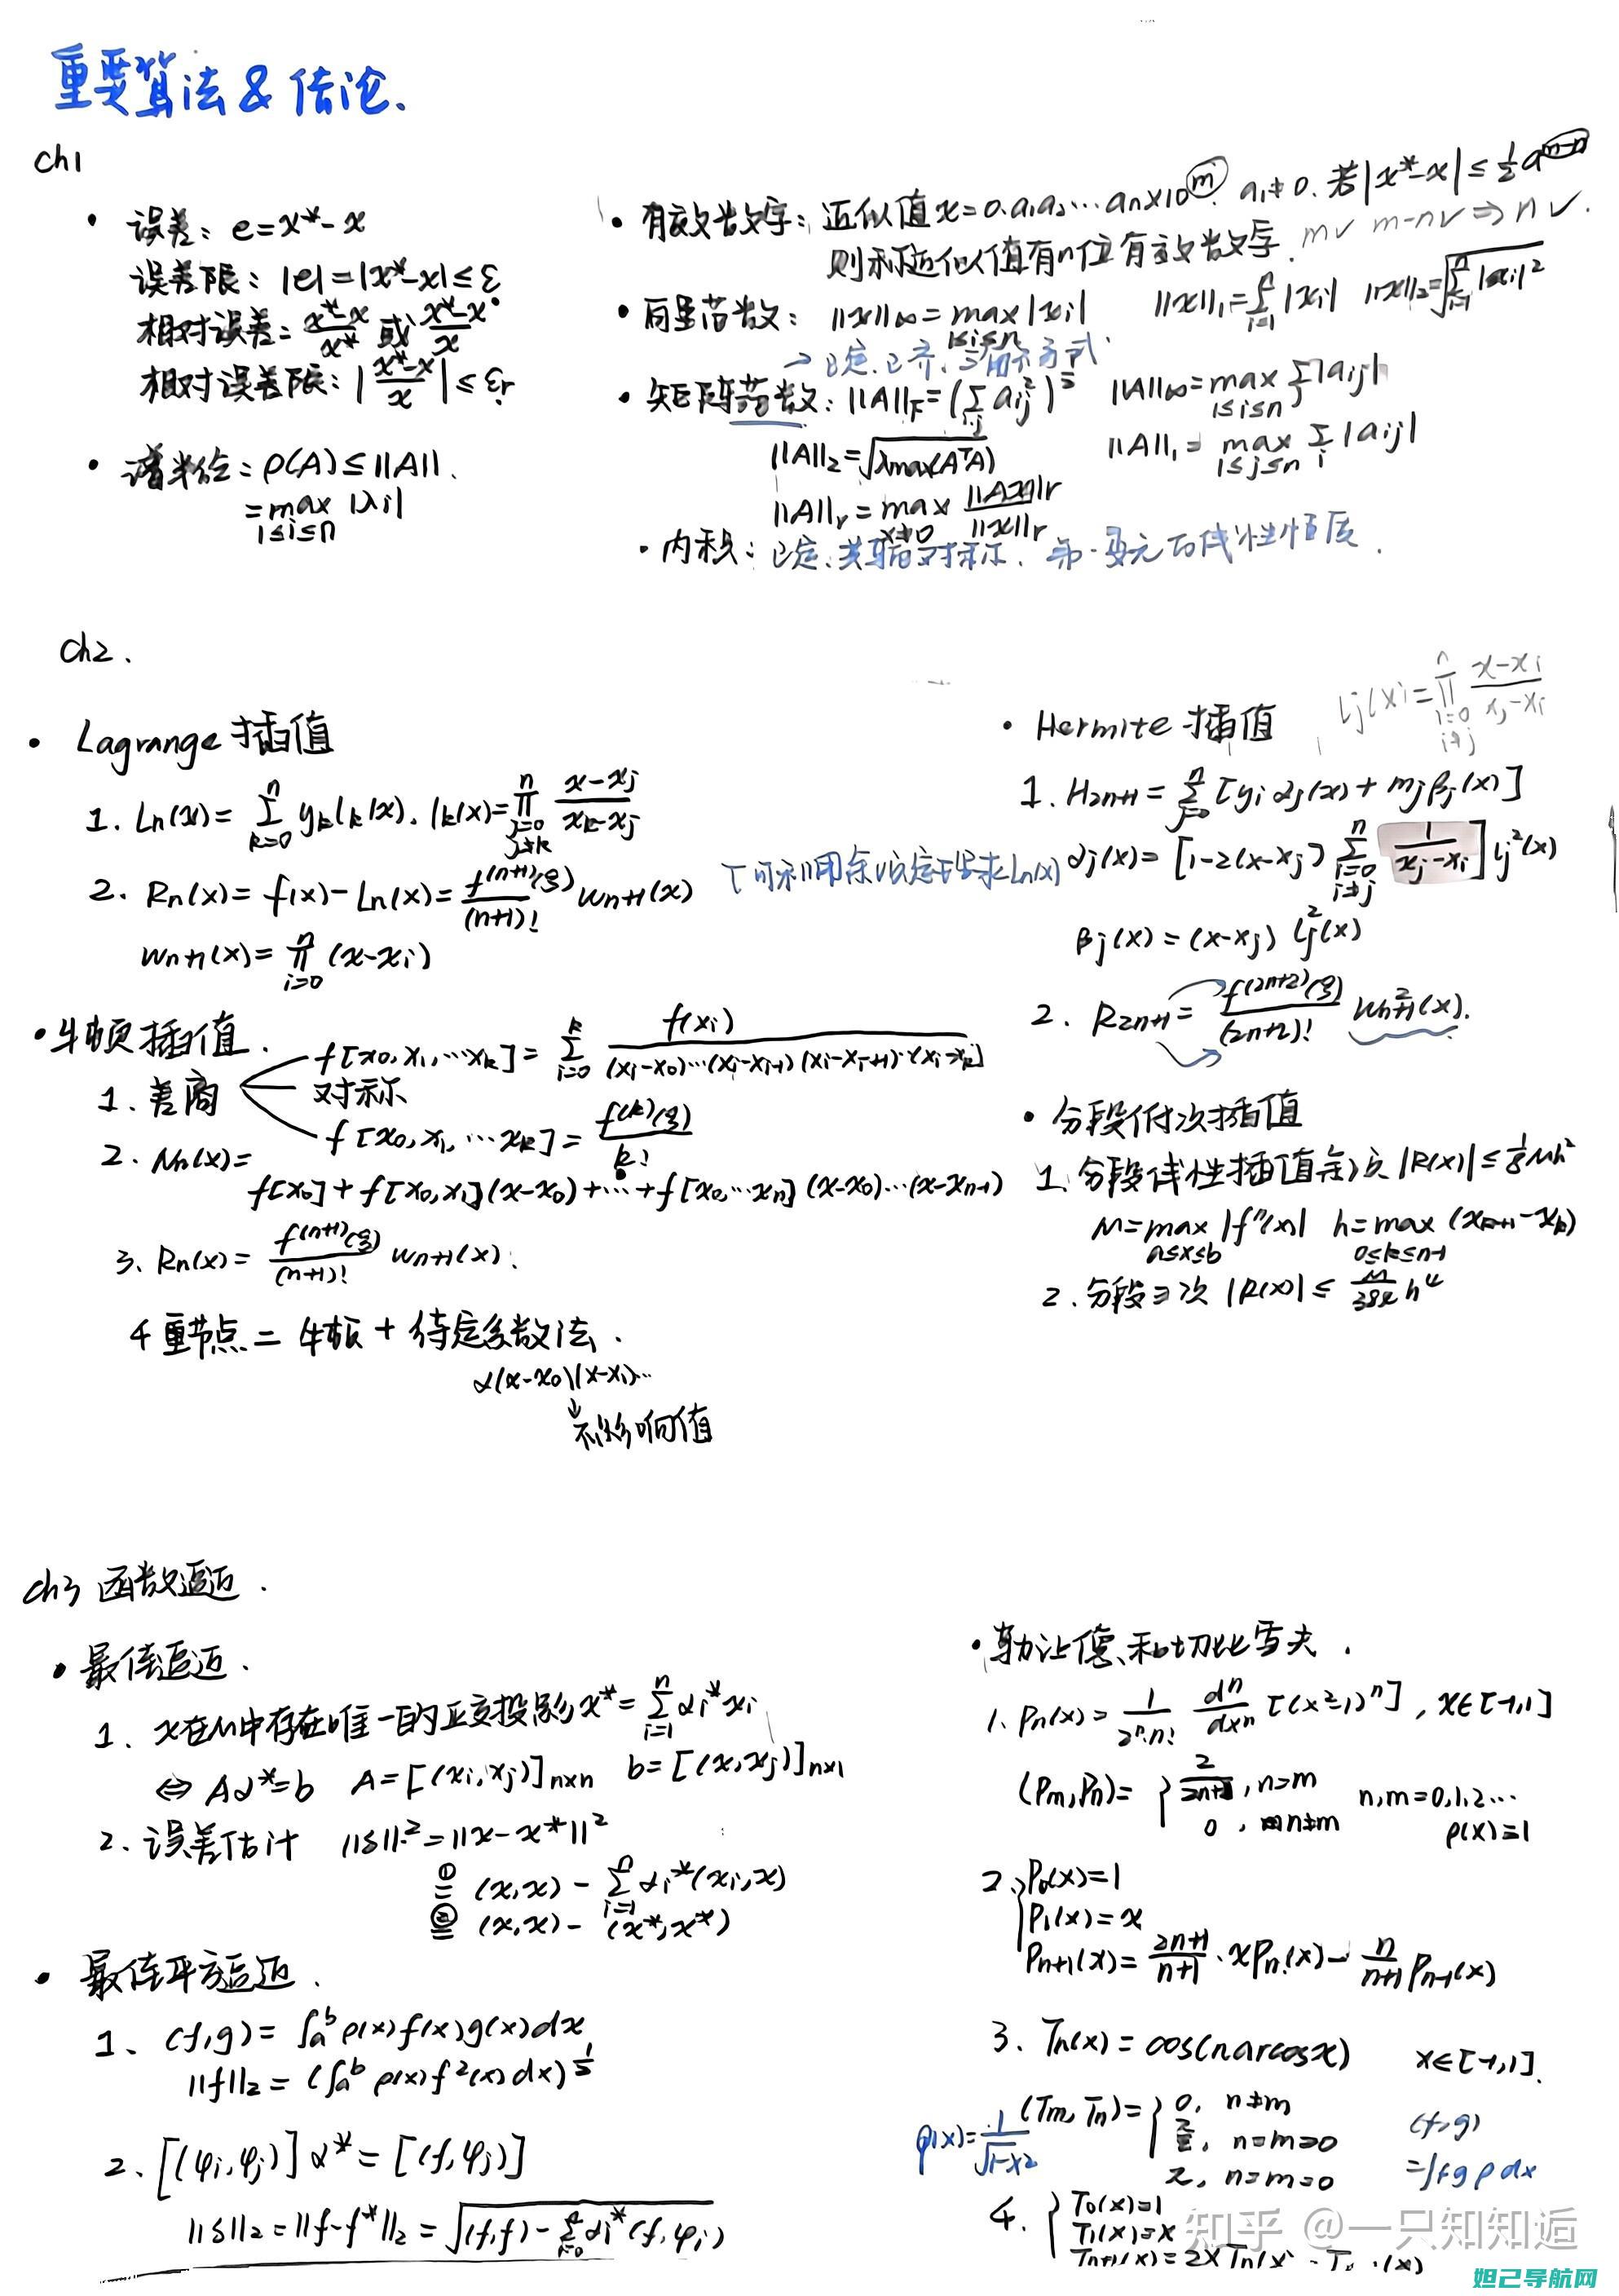 重要算法 & 结论.
ch1
• 误差: e=x*-x
误差限: |e|=|x*-x|≤ε
相对误差= (x*-x)/x* 或 (x*-x)/x
相对误差限: |(x*-x)/x|≤εr
• 谱半径: ρ(A)≤||A||.
=max |λi|
1≤i≤n
• 有效数字: 近似值x=0.a1a2…an×10^m. a1≠0. 若|x*-x|≤½a^(m-n)
则称近似值有n位有效数字. m✓ m-n✓ ⇒ n✓.
• 向量范数: ||x||∞=max|xi| ||x||1=Σ|xi| ||x||2=√(Σ|xi|²)
1≤i≤n
→ 正定.正齐.三角不等式.
• 矩阵范数: ||A||F=(Σ aij²)^½ ||A||∞=max Σ|aij|
1≤i≤n j
||A||2=√(λmax(AᵀA)) ||A||1=max Σ|aij|
1≤j≤n i
||A||r=max ||Ax||r/||x||r
x≠0
• 内积: 正定.共轭对称. 第一变元的线性性质.
ch2.
• Lagrange 插值
1. Ln(x)= Σ(k=0,n) yk lk(x). lk(x)=∏(j=0,j≠k,n) (x-xj)/(xk-xj)
2. Rn(x)=f(x)-Ln(x)= f^(n+1)(ξ)/(n+1)! wn+1(x)
wn+1(x)=∏(i=0,n)(x-xi)
• 牛顿插值.
1. 差商
f[x0,x1,…xk]= Σ(i=0,k) f(xi)/((xi-x0)…(xi-xi-1)(xi-xi+1)…(xi-xk))
对称
f[x0,x1,…xk]= f^(k)(ξ)/k!
2. Nn(x)=
f[x0]+f[x0,x1](x-x0)+…+f[x0,…xn](x-x0)…(x-xn-1)
3. Rn(x)= f^(n+1)(ξ)/(n+1)! wn+1(x).
4 重节点 = 牛顿 + 待定系数法.
α(x-x0)(x-x1)…
↓
不影响值
• Hermite 插值 lj(x)=∏(i=0,i≠j,n) (x-xi)/(xj-xi)
1. H2n+1= Σ(j=0,n) [yi αj(x)+mjβj(x)]
αj(x)= [1-2(x-xj) Σ(i=0,i≠j,n) 1/(xj-xi)] lj²(x)
βj(x)=(x-xj) lj²(x)
2. R2n+1= f^(2n+2)(ξ)/(2n+2)! wn+1²(x).
• 分段低次插值
1. 分段线性插值余项 |R(x)|≤⅛Mh²
M=max|f''(x)| h=max(xk+1-xk)
a≤x≤b 0≤k≤n-1
2. 分段三次 |R(x)|≤ M/384 h⁴
ch3 函数逼近.
• 最佳逼近.
1. x在M中存在唯一的正交投影x*=Σ(i=1,n) αi*xi
⇔ Aα*=b A=[(xi,xj)]n×n b=[(x,xj)]n×1
2. 误差估计 ||δ||²=||x-x*||²
①= (x,x) - Σ(i=1,n) αi*(xi,x)
②= (x,x) - (x*,x*)
• 最佳平方逼近.
1. (f,g)= ∫a^b ρ(x)f(x)g(x)dx
||f||2= (∫a^b ρ(x)f²(x)dx)^½
2. [(φi,φj)] α*=[(f,φj)]
||δ||2=||f-f*||2=√((f,f)-Σ(i=0,n) αi*(f,φi))
• 勒让德和切比雪夫.
1. Pn(x)= 1/(2ⁿ·n!) dⁿ/dxⁿ [(x²-1)ⁿ], x∈[-1,1]
(Pm,Pn)= { 2/(2n+1), n=m n,m=0,1,2…
0, n≠m ρ(x)=1
2. { P0(x)=1
P1(x)=x
Pn+1(x)= (2n+1)/(n+1)·xPn(x)- n/(n+1) Pn-1(x)
3. Tn(x)=cos(n arcosx) x∈[-1,1].
ρ(x)=1/√(1-x²) (Tm,Tn)= { 0, n≠m (f,g)
π/2, n=m≠0 =∫fgρdx
π, n=m=0
4. { T0(x)=1
T1(x)=x
Tn+1(x)=2xTn(x)-T (x)
知乎 @一只知知逅
妲己导航网